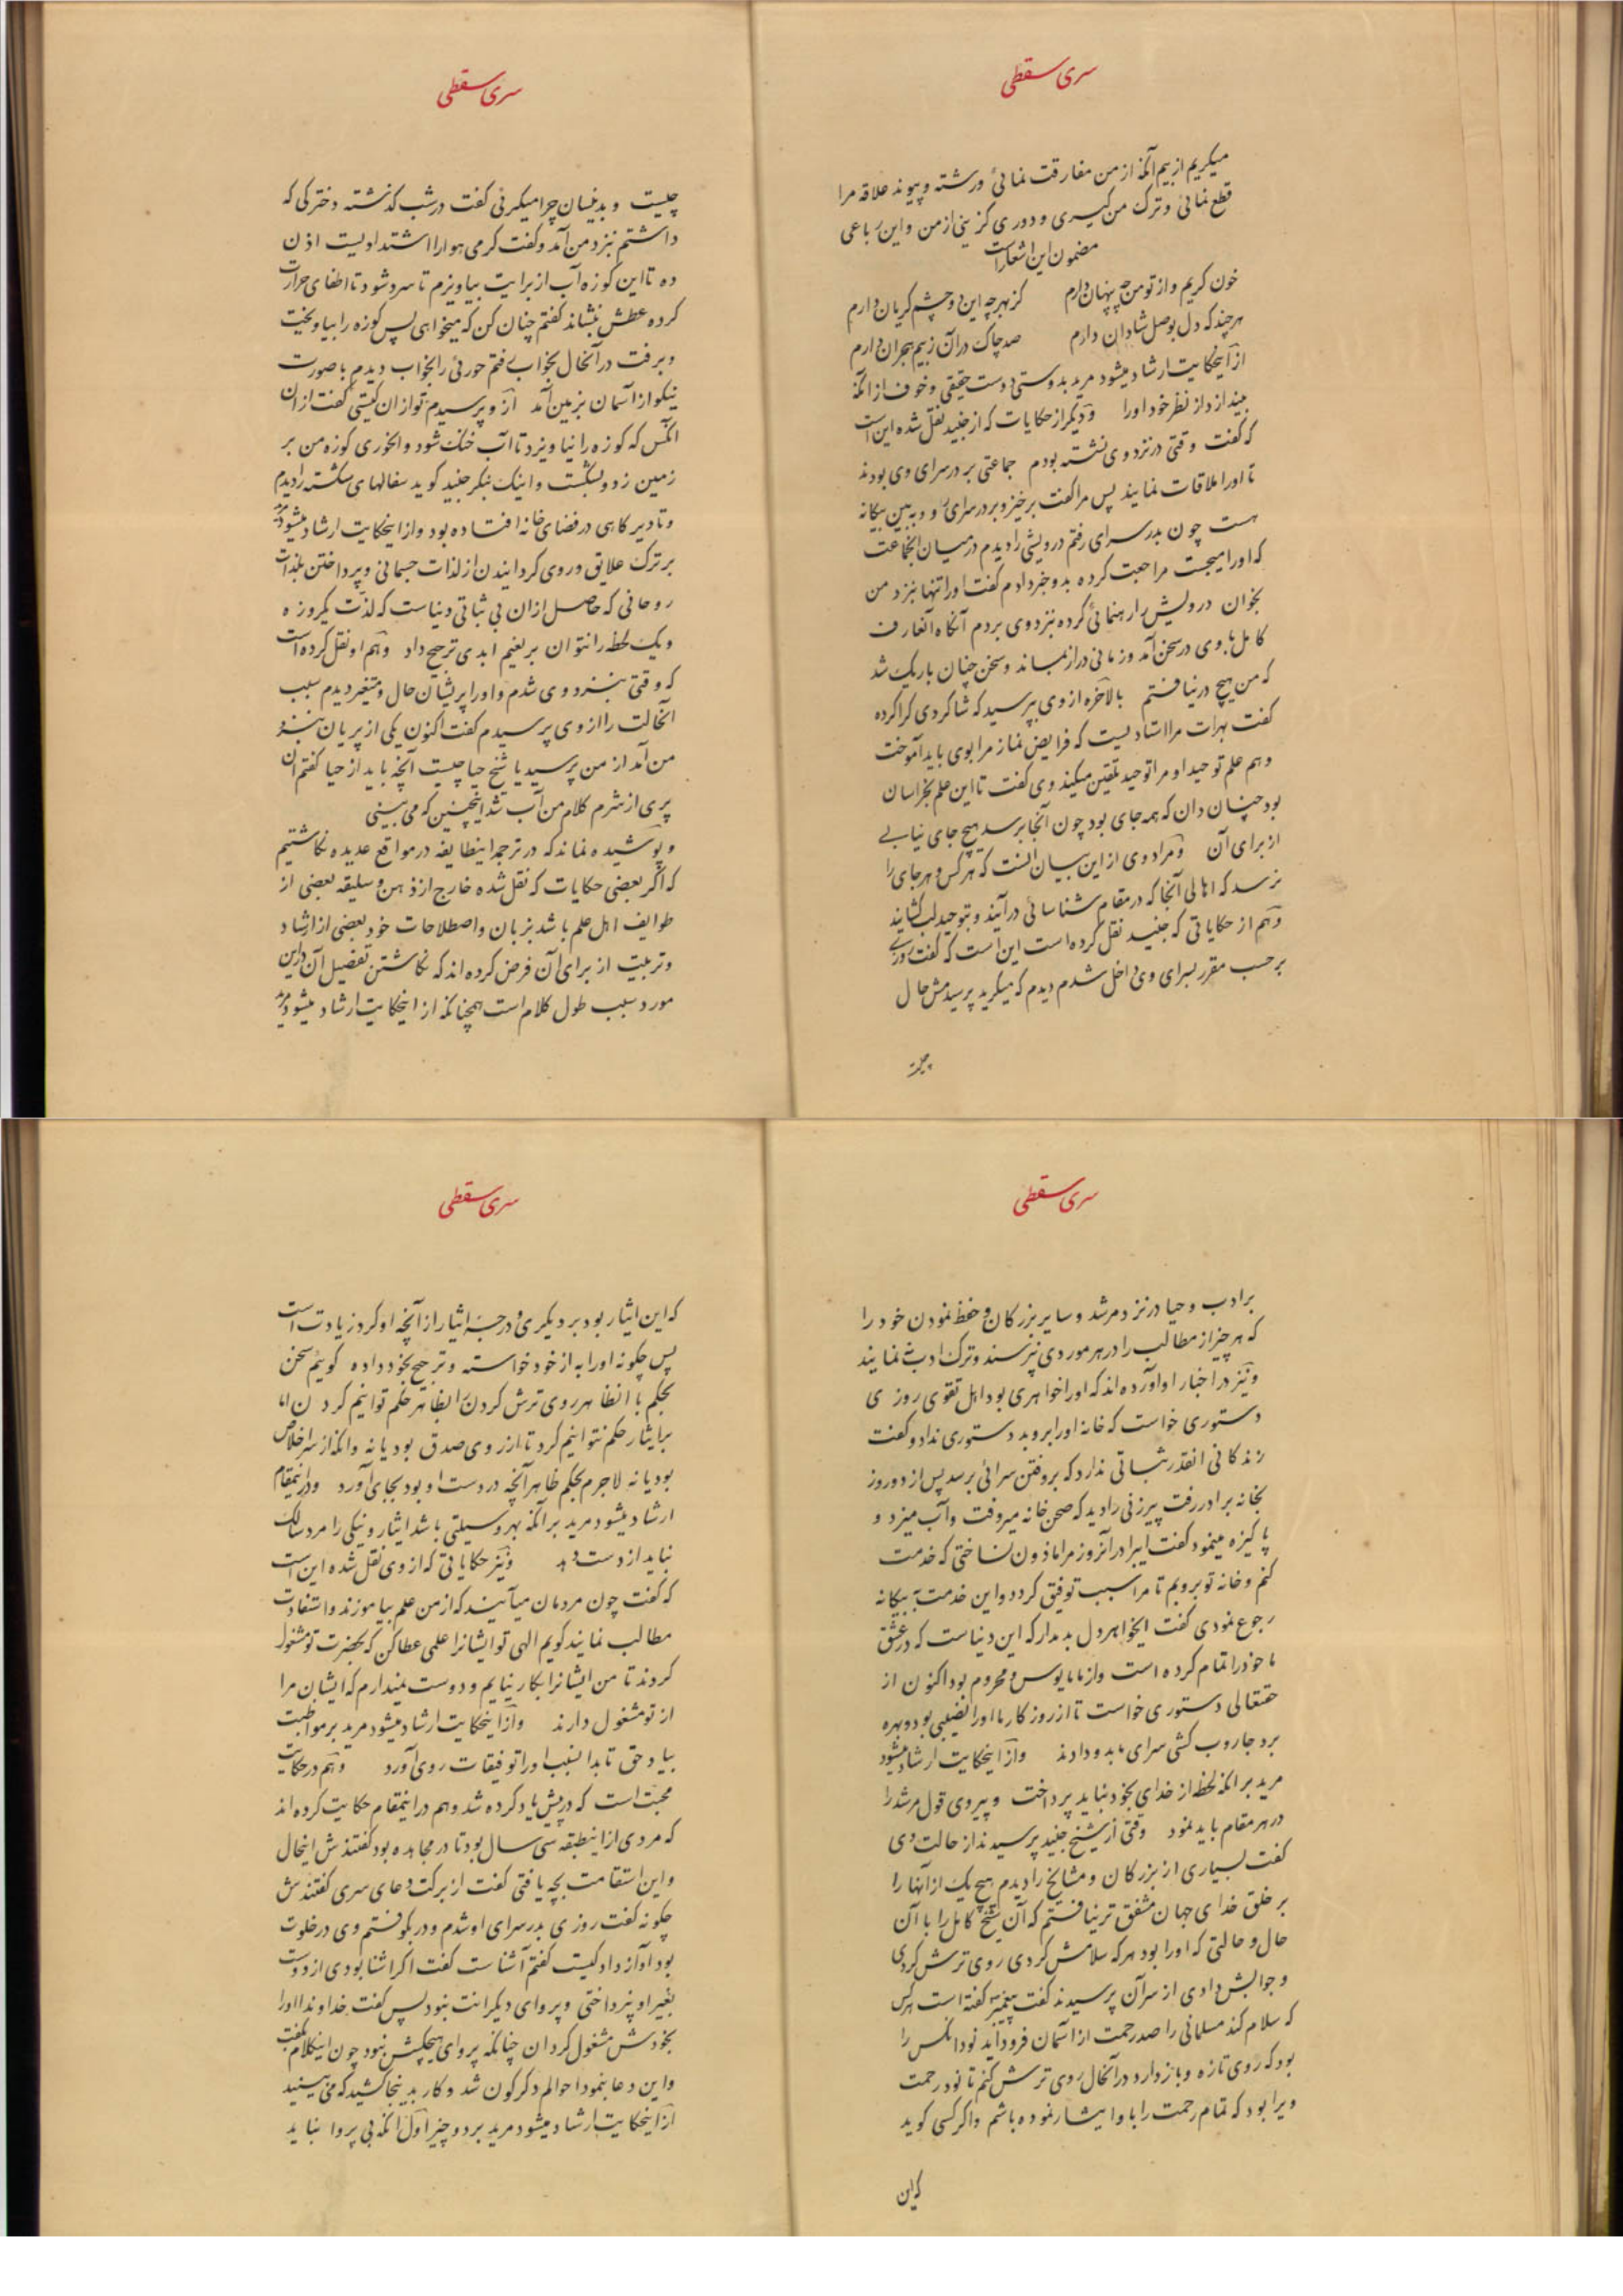 سری سقطی
میکریم از بیم آنکه از من مفارقت نمائی و رشته و پیوند علاقه مرا
قطع نمائی و ترک من گیری و دوری گزینی از من و این رباعی
مضمون این اشعار است
خون گریم و از تو من چه پنهان دارم کز بهر چه این دو چشم گریان دارم
هر چند که دل بوصل شادان دارم صد چاک در آن ز بیم هجران دارم
از اینحکایت ارشاد میشود مرید بدوستی دوست حقیقی و خوف از آنکه
بیندازد از نظر خود او را و دیگر از حکایات که از جنید نقل شده این است
که گفت وقتی در نزد وی نشسته بودم جماعتی بر در سرای وی بودند
تا او را ملاقات نمایند پس مرا گفت برخیز و بر در سرای رو و ببین بیگانه
هست چون بدر سرای رفتم درویشی را دیدم در میان آنجماعت
که او را میجست مراجعت کرده بدو خبر دادم گفت او را تنها بنزد من
بخوان درویش را رهنمائی کرده نزد وی بردم آنگاه آنعارف
کامل با وی در سخن آمد و زمانی دراز بماند و سخن چنان باریک شد
که من هیچ در نیافتم بالاخره از وی بپرسید که شاگردی کرا کرده
گفت بهرات مرا استادیست که فرایض نماز مرا بوی باید آموخت
و هم علم توحید او مرا توحید تلقین میکند وی گفت تا این علم بخراسان
بود چنان دان که همه جای بود چون آنجا برسد هیچ جای نیابی
از برای آن و مراد وی از این بیان آنست که هر کس و هر جای را
نرسد که اهالی آنجا که در مقام شناسائی در آیند و بتوحید لب گشایند
و هم از حکایاتی که جنید نقل کرده است این است که گفت روزی
بر حسب مقرر بسرای وی داخل شدم دیدم که میگرید پرسیدمش حال
چیست
سری سقطی
چیست و بدینسان چرا میگرئی گفت در شب گذشته دخترکی که
داشتم نزد من آمد و گفت گرمی هوا را اشتدادیست اذن
ده تا این کوزه آب از برایت بیاویزم تا سرد شود تا اطفای حرارت
کرده عطش بنشاند گفتم چنان کن که میخواهی پس کوزه را بیاویخت
و برفت در آنحال بخواب رفتم حورئی را بخواب دیدم با صورت
نیکو از آسمان بزمین آمد از او پرسیدم تو از ان کیستی گفت از ان
انکس که کوزه را نیاویزد تا آب خنک شود و بخوری کوزه من بر
زمین زد و بشکست و اینک بنگر جنید گوید سفالهای شکسته را دیدم
و تا دیر گاهی در فضای خانه افتاده بود و از اینحکایت ارشاد میشود مرید
بر ترک علایق و روی گردانیدن از لذات جسمانی و پرداختن بلذات
روحانی که حاصل ازان بی ثباتی دنیاست که لذت یکروزه
و یک لحظه را نتوان بر نعیم ابدی ترجیح داد و هم او نقل کرده است
که وقتی بنزد وی شدم و او را پریشان حال و متغیر دیدم سبب
آنحالت را از وی پرسیدم گفت اکنون یکی از پریان بنزد
من آمد از من پرسید یا شیخ حیا چیست آنچه باید از حیا گفتم ان
پری از شرم کلام من آب شد اینچنین که می بینی
و پوشیده نماند که در ترجمه اینطایفه در مواقع عدیده نگاشتیم
که اگر بعضی حکایات که نقل شده خارج از ذهن و سلیقه بعضی از
طوایف اهل علم باشد بزبان و اصطلاحات خود بعضی از ارشاد
و تربیت از برای آن فرض کرده اند که نگاشتن تفصیل آن در این
مورد سبب طول کلام است همچنانکه از اینحکایت ارشاد میشود مرید
سری سقطی
بر ادب و حیا در نزد مرشد و سایر بزرگان و حفظ نمودن خود را
که هر چیز از مطالب را در هر موردی نپرسند و ترک ادب ننمایند
و نیز در اخبار او آورده اند که او را خواهری بود اهل تقوی روزی
دستوری خواست که خانه او را بروبد دستوری نداد و گفت
زندگانی انقدر ثباتی ندارد که بروفتن سرائی برسد پس از دو روز
بخانه برادر رفت پیرزنی را دید که صحن خانه میروفت و آب میزد و
پاکیزه مینمود گفت ایبرادر آنروز مرا ماذون نساختی که خدمت
کنم و خانه تو بروبم تا مرا سبب توفیق گردد و این خدمت به بیگانه
رجوع نمودی گفت ایخواهر دل بد مدار که این دنیاست که در عشق
ما خود را تمام کرده است و از ما مایوس و محروم بود اکنون از
حقتعالی دستوری خواست تا از روزگار ما او را نصیبی بود و بهره
برد جاروب کشی سرای ما بدو دادند و از اینحکایت ارشاد میشود
مرید بر انکه لحظه از خدای بخود نباید پرداخت و پیروی قول مرشد را
در هر مقام باید نمود وقتی از شیخ جنید پرسیدند از حالت وی
گفت بسیاری از بزرگان و مشایخ را دیدم هیچ یک از آنها را
بر خلق خدای جهان مشفق تر نیافتم که آن شیخ کامل را با آن
حال و حالتی که او را بود هر که سلامش کردی روی ترش کردی
و جوابش دادی از سر آن پرسیدند گفت پیغمبر گفته است هر کس
که سلام کند مسلمانی را صد رحمت از آسمان فرود آید نود انکس را
بود که روی تازه و باز دارد در آنحال روی ترش کنم تا نود رحمت
ویرا بود که تمام رحمت را با و ایثار نموده باشم و اگر کسی گوید
که این
سری سقطی
که این ایثار بود بر دیگری و درجه ایثار از آنچه او کرد زیادت است
پس چگونه او را به از خود خواسته و ترجیح بخود داده گوئیم سخن
بحکم با انظاهر روی ترش کردن را بظاهر حکم توانیم کرد ن اما
بر ایثار حکم نتوانیم کرد تا از روی صدق بود یا نه و انکه از سر اخلاص
بود یا نه لاجرم بحکم ظاهر آنچه در دست او بود بجای آورد و در اینمقام
ارشاد میشود مرید بر آنکه بهر وسیلتی باشد ایثار و نیکی را مرد سالک
نباید از دست دهد و نیز حکایاتی که از وی نقل شده این است
که گفت چون مردمان میآیند که از من علم بیاموزند و استفادت
مطالب نمایند گویم الهی تو ایشانرا علمی عطا کن که بحضرت تو مشغول
گردند تا من ایشانرا بکار نیایم و دوست نمیدارم که ایشان مرا
از تو مشغول دارند و از اینحکایت ارشاد میشود مرید بر مواظبت
بیاد حق تا بدانسبب او را توفیقات روی آورد و هم در حکایت
محبت است که در پیش یاد کرده شد و هم در اینمقام حکایت کرده اند
که مردی از اینطبقه سی سال بود تا در مجاهده بود گفتندش اینحال
و این استقامت بچه یافتی گفت از برکت دعای سری گفتندش
چگونه گفت روزی بدر سرای او شدم و در بکوفتم وی در خلوت
بود آواز داد کیست گفتم آشناست گفت اگر اشنا بودی از دوست
بغیر او نپرداختی و پروای دیگرانت نبود پس گفت خداوندا او را
بخودش مشغول گردان چنانکه پروای هیچکسش نبود چون اینکلام بگفت
و این دعا بنمود احوالم دگرگون شد و کار بدینجا کشید که می بینید
از اینحکایت ارشاد میشود مرید بر دو چیز اول انکه بی پروا نباید